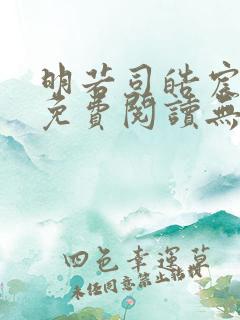 明若司皓宸
免費閱讀無
四色幸運草
未任同意禁止转载